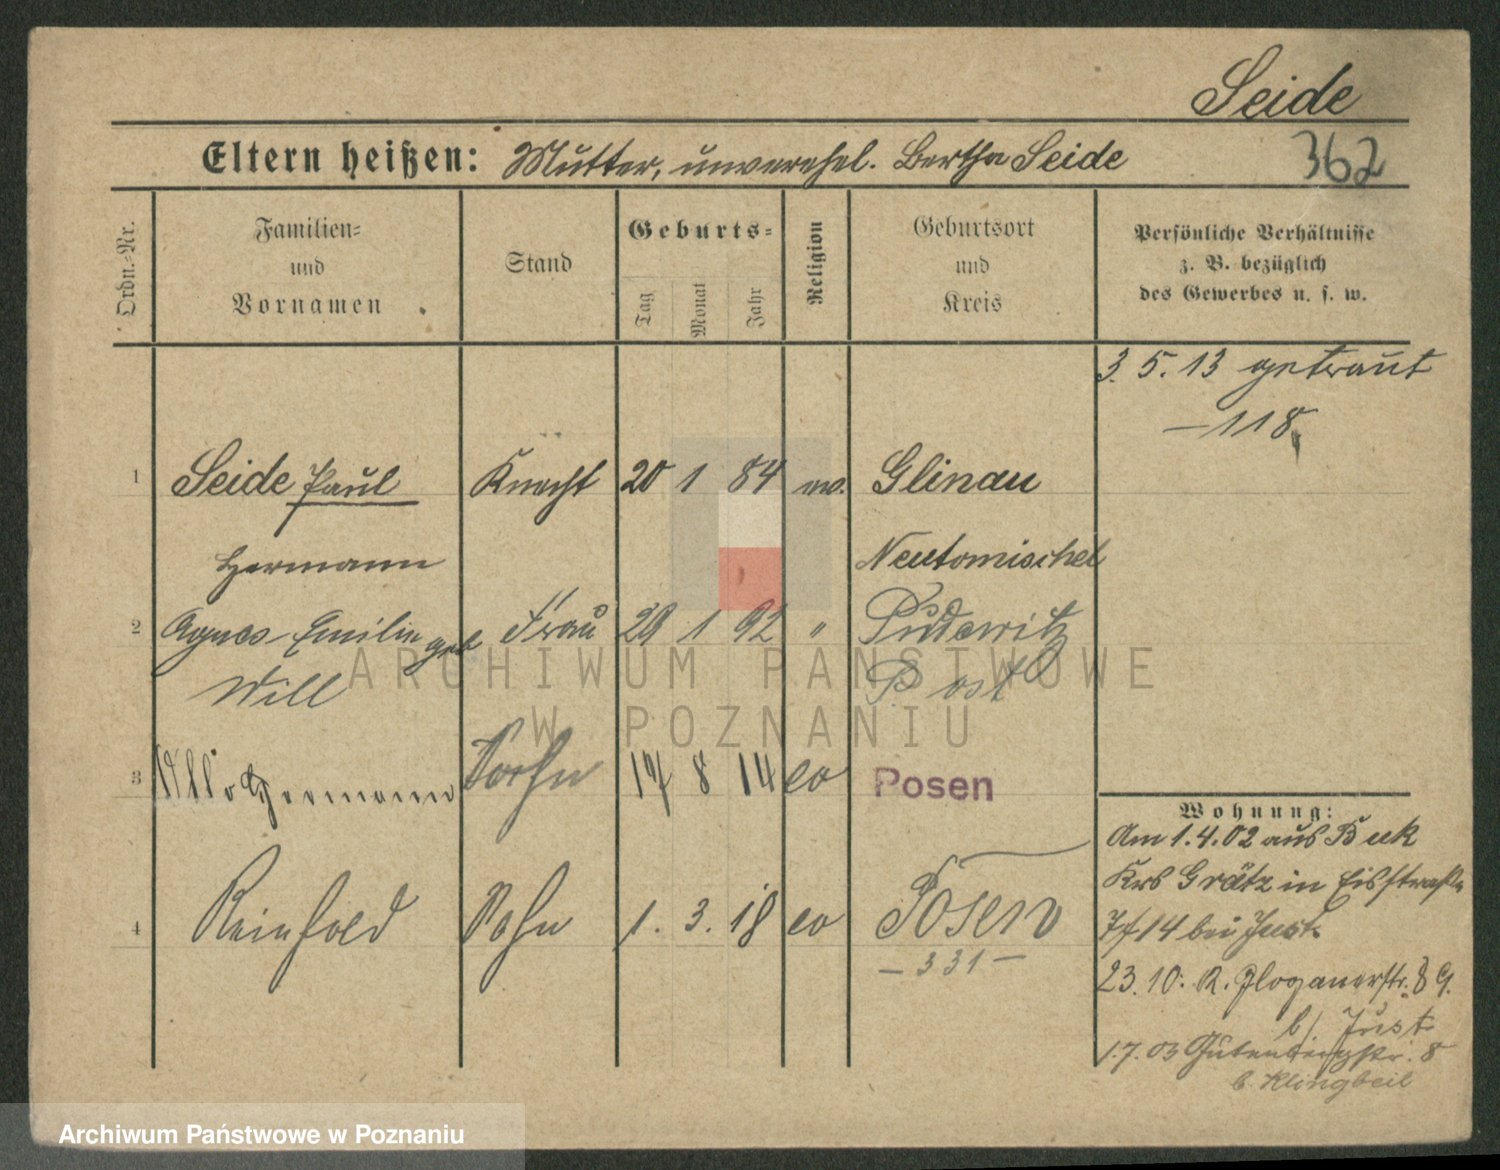 Seide
362
Eltern heißen: Mutter, unverehel. Bertha Seide
Ordn.-Nr.
Familien-
und
Vornamen
Stand
Geburts-
Tag
Monat
Jahr
Religion
Geburtsort
und
Kreis
Persönliche Verhältnisse
z. B. bezüglich
des Gewerbes u. s. w.
3. 5. 13 getraut
— 118
1 Seide Paul Knecht 20 1 84 ev. Glinau
Hermann Neutomischel
2 Agnes Emilie geb Frau 29 1 92 " Pudewitz
Will Post
3 Hermann Sohn 14 8 14 ev Posen
4 Reinhold Sohn 1. 3. 18 ev Posen
— 331 —
Wohnung:
Am 1.4.02 aus Buk
Krs Grätz in Eisstraße
14 bei Just
23.10: R. Glogauerstr. 89.
b/ Just
1.7.03 Gutenbergstr. 8
b. Klingbeil
ARCHIWUM PAŃSTWOWE
W POZNANIU
Archiwum Państwowe w Poznaniu